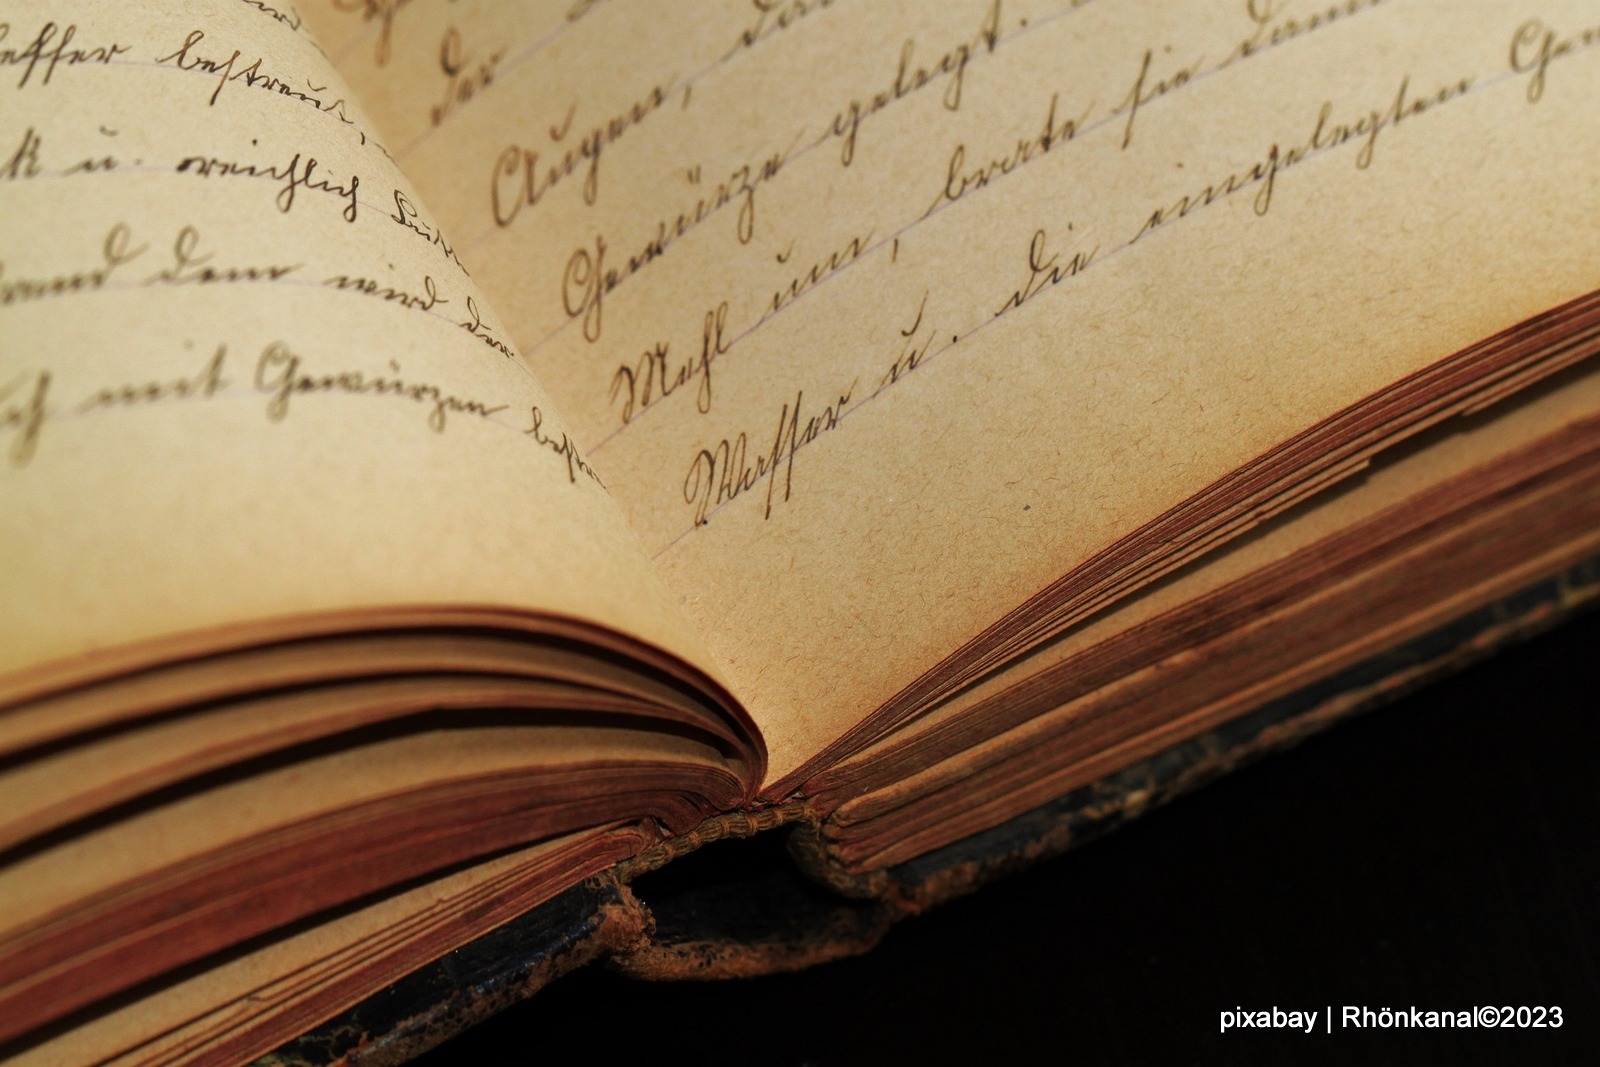 effer bestreut,
k u. reichlich
und dem wird der
ich mit Gewürzen best
der
Augen, da
Gewürze gelegt.
Mehl um, brate sie dann
Wasser u. die eingelegten Gew
pixabay | Rhönkanal©2023